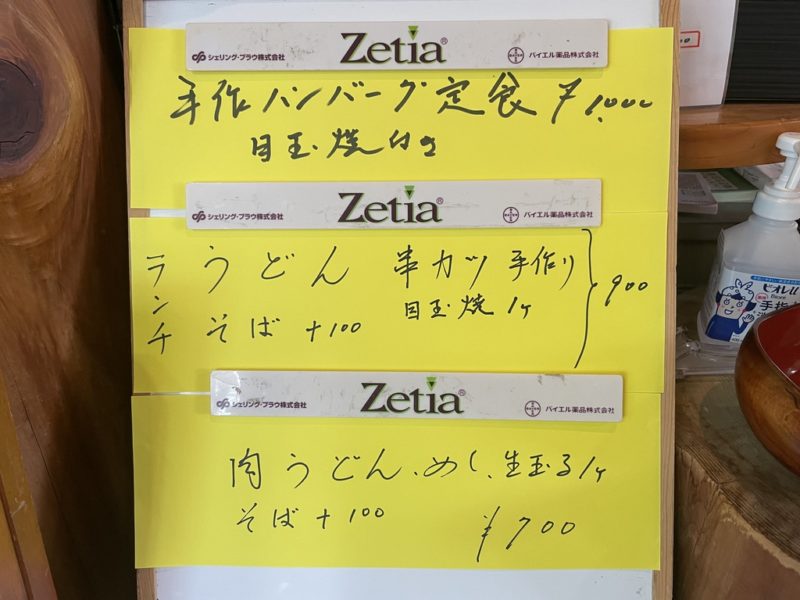 シェリング・プラウ株式会社 Zetia® バイエル薬品株式会社
手作ハンバーグ定食 ¥1,000
目玉焼付き
シェリング・プラウ株式会社 Zetia® バイエル薬品株式会社
ランチ
うどん 串カツ 手作り
そば +100 目玉焼 1ヶ
900
シェリング・プラウ株式会社 Zetia® バイエル薬品株式会社
肉うどん、めし、生玉る1ヶ
そば+100 ¥700
ビオレu
手指